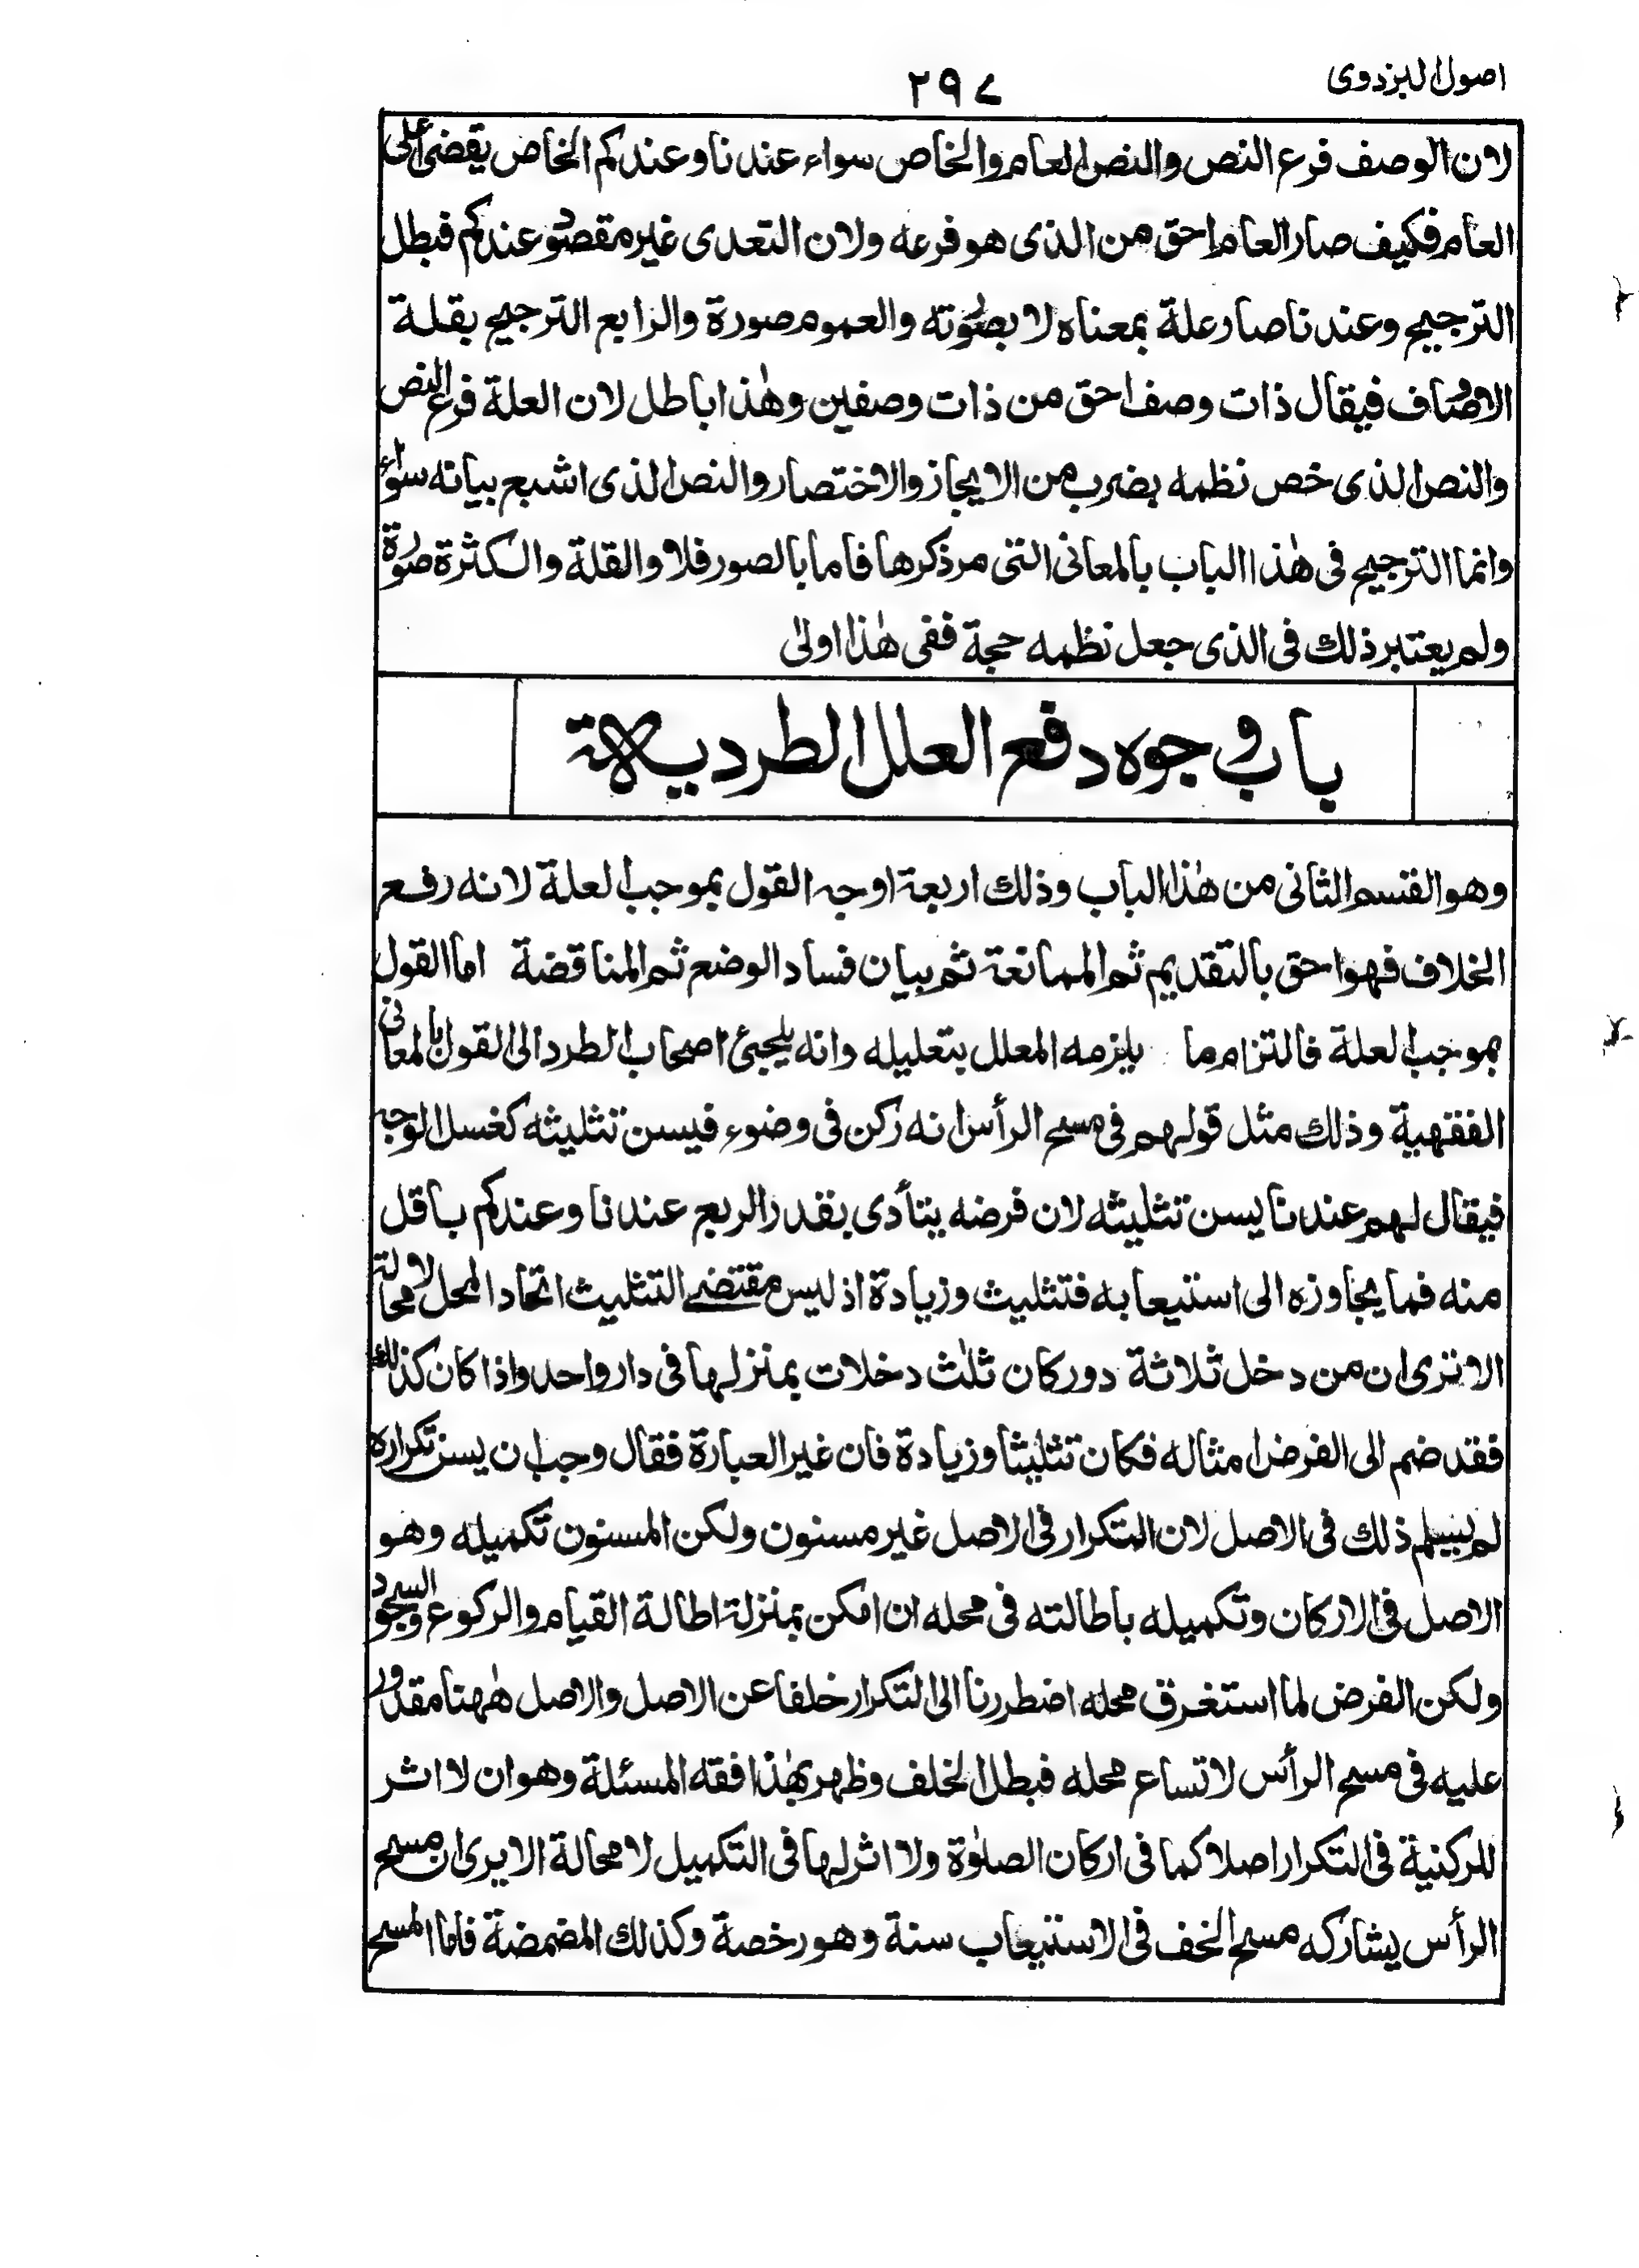 اصول البزدوى
۲۹۷
لان الوصف فرع النص والنص العام والخاص سواء عندنا وعندكم الخاص يقضى على
العام فكيف صار العام احق من الذى هو فرعه ولان التعدى غير مقصود عندكم فبطل
الترجيح وعندنا صار علة بمعناه لا بصورته والعموم صورة والرابع الترجيح بقلة
الاوصاف فيقال ذات وصف احق من ذات وصفين وهٰذا باطل لان العلة فرع النص
والنص الذى خص نظمه بضرب من الايجاز والاختصار والنص الذى اشبع بيانه سواء
وانما الترجيح فى هٰذا الباب بالمعانى التى مر ذكرها فاما بالصور فلا والقلة والكثرة صورة
ولم يعتبر ذلك فى الذى جعل نظمه حجة ففى هٰذا اولىٰ
باب وجوه دفع العلل الطردية
وهو القسم الثانى من هٰذا الباب وذلك اربعة اوجه القول بموجب العلة لانه رفع
الخلاف فهو احق بالتقديم ثم الممانعة ثم بيان فساد الوضع ثم المناقضة اما القول
بموجب العلة فالتزام ما يلزمه المعلل بتعليله وانه يلجئ اصحاب الطرد الى القول بالمعانى
الفقهية وذلك مثل قولهم فى مسح الرأس انه ركن فى وضوء فيسن تثليثه كغسل الوجه
فيقال لهم عندنا يسن تثليثه لان فرضه يتأدى بقدر الربع عندنا وعندكم باقل
منه فما يجاوزه الى استيعابه فتثليث وزيادة اذ ليس مقتضى التثليث اتحاد المحل لا محالة
الا ترى ان من دخل ثلاثة دور كان ثلٰث دخلات بمنزلها فى دار واحد واذا كان كذلك
فقد ضم الى الفرض امثاله فكان تثليثا وزيادة فان غير العبارة فقال وجب ان يسن تكراره
لم يسلم ذلك فى الاصل لان التكرار فى الاصل غير مسنون ولكن المسنون تكميله وهو
الاصل فى الاركان وتكميله باطالته فى محله ان امكن بمنزلة اطالة القيام والركوع والسجود
ولكن الفرض لما استغرق محله اضطررنا الى التكرار خلفا عن الاصل والاصل هٰهنا مقدور
عليه فى مسح الرأس لاتساع محله فبطل الخلف وظهر بهٰذا فقه المسئلة وهو ان لا اثر
للركنية فى التكرار اصلا كما فى اركان الصلوٰة ولا اثر لها فى التكميل لا محالة الا يرى ان مسح
الرأس يشاركه مسح الخف فى الاستيعاب سنة وهو رخصة وكذلك المضمضة فاما المسح